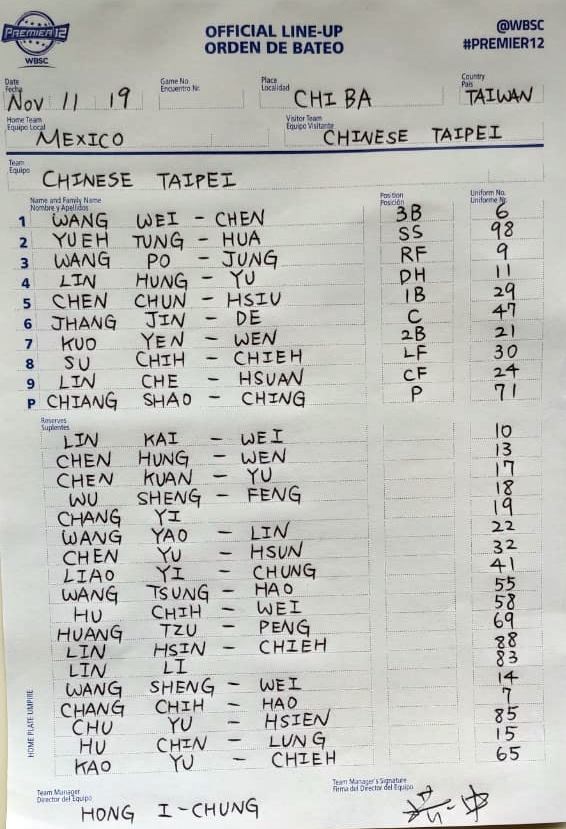 PREMIER12
WBSC
OFFICIAL LINE-UP
ORDEN DE BATEO
@WBSC
#PREMIER12
Date
Fecha
Nov 11 19
Game No.
Encuentro Nr.
Place
Localidad
CHIBA
Country
País
TAIWAN
Home Team
Equipo Local
MEXICO
Visitor Team
Equipo Visitante
CHINESE TAIPEI
Team
Equipo
CHINESE TAIPEI
Name and Family Name
Nombre y Apellidos
Position
Posición
Uniform No.
Uniforme Nr.
1 WANG WEI - CHEN 3B 6
2 YUEH TUNG - HUA SS 98
3 WANG PO - JUNG RF 9
4 LIN HUNG - YU DH 11
5 CHEN CHUN - HSIU 1B 29
6 JHANG JIN - DE C 47
7 KUO YEN - WEN 2B 21
8 SU CHIH - CHIEH LF 30
9 LIN CHE - HSUAN CF 24
P CHIANG SHAO - CHING P 71
Reserves
Suplentes
LIN KAI - WEI 10
CHEN HUNG - WEN 13
CHEN KUAN - YU 17
WU SHENG - FENG 18
CHANG YI 19
WANG YAO - LIN 22
CHEN YU - HSUN 32
LIAO YI - CHUNG 41
WANG TSUNG - HAO 55
HU CHIH - WEI 58
HUANG TZU - PENG 69
LIN HSIN - CHIEH 88
LIN LI 83
WANG SHENG - WEI 14
CHANG CHIH - HAO 7
CHU YU - HSIEN 85
HU CHIN - LUNG 15
KAO YU - CHIEH 65
HOME PLATE UMPIRE
Team Manager
Director del Equipo
HONG I-CHUNG
Team Manager's Signature
Firma del Director del Equipo